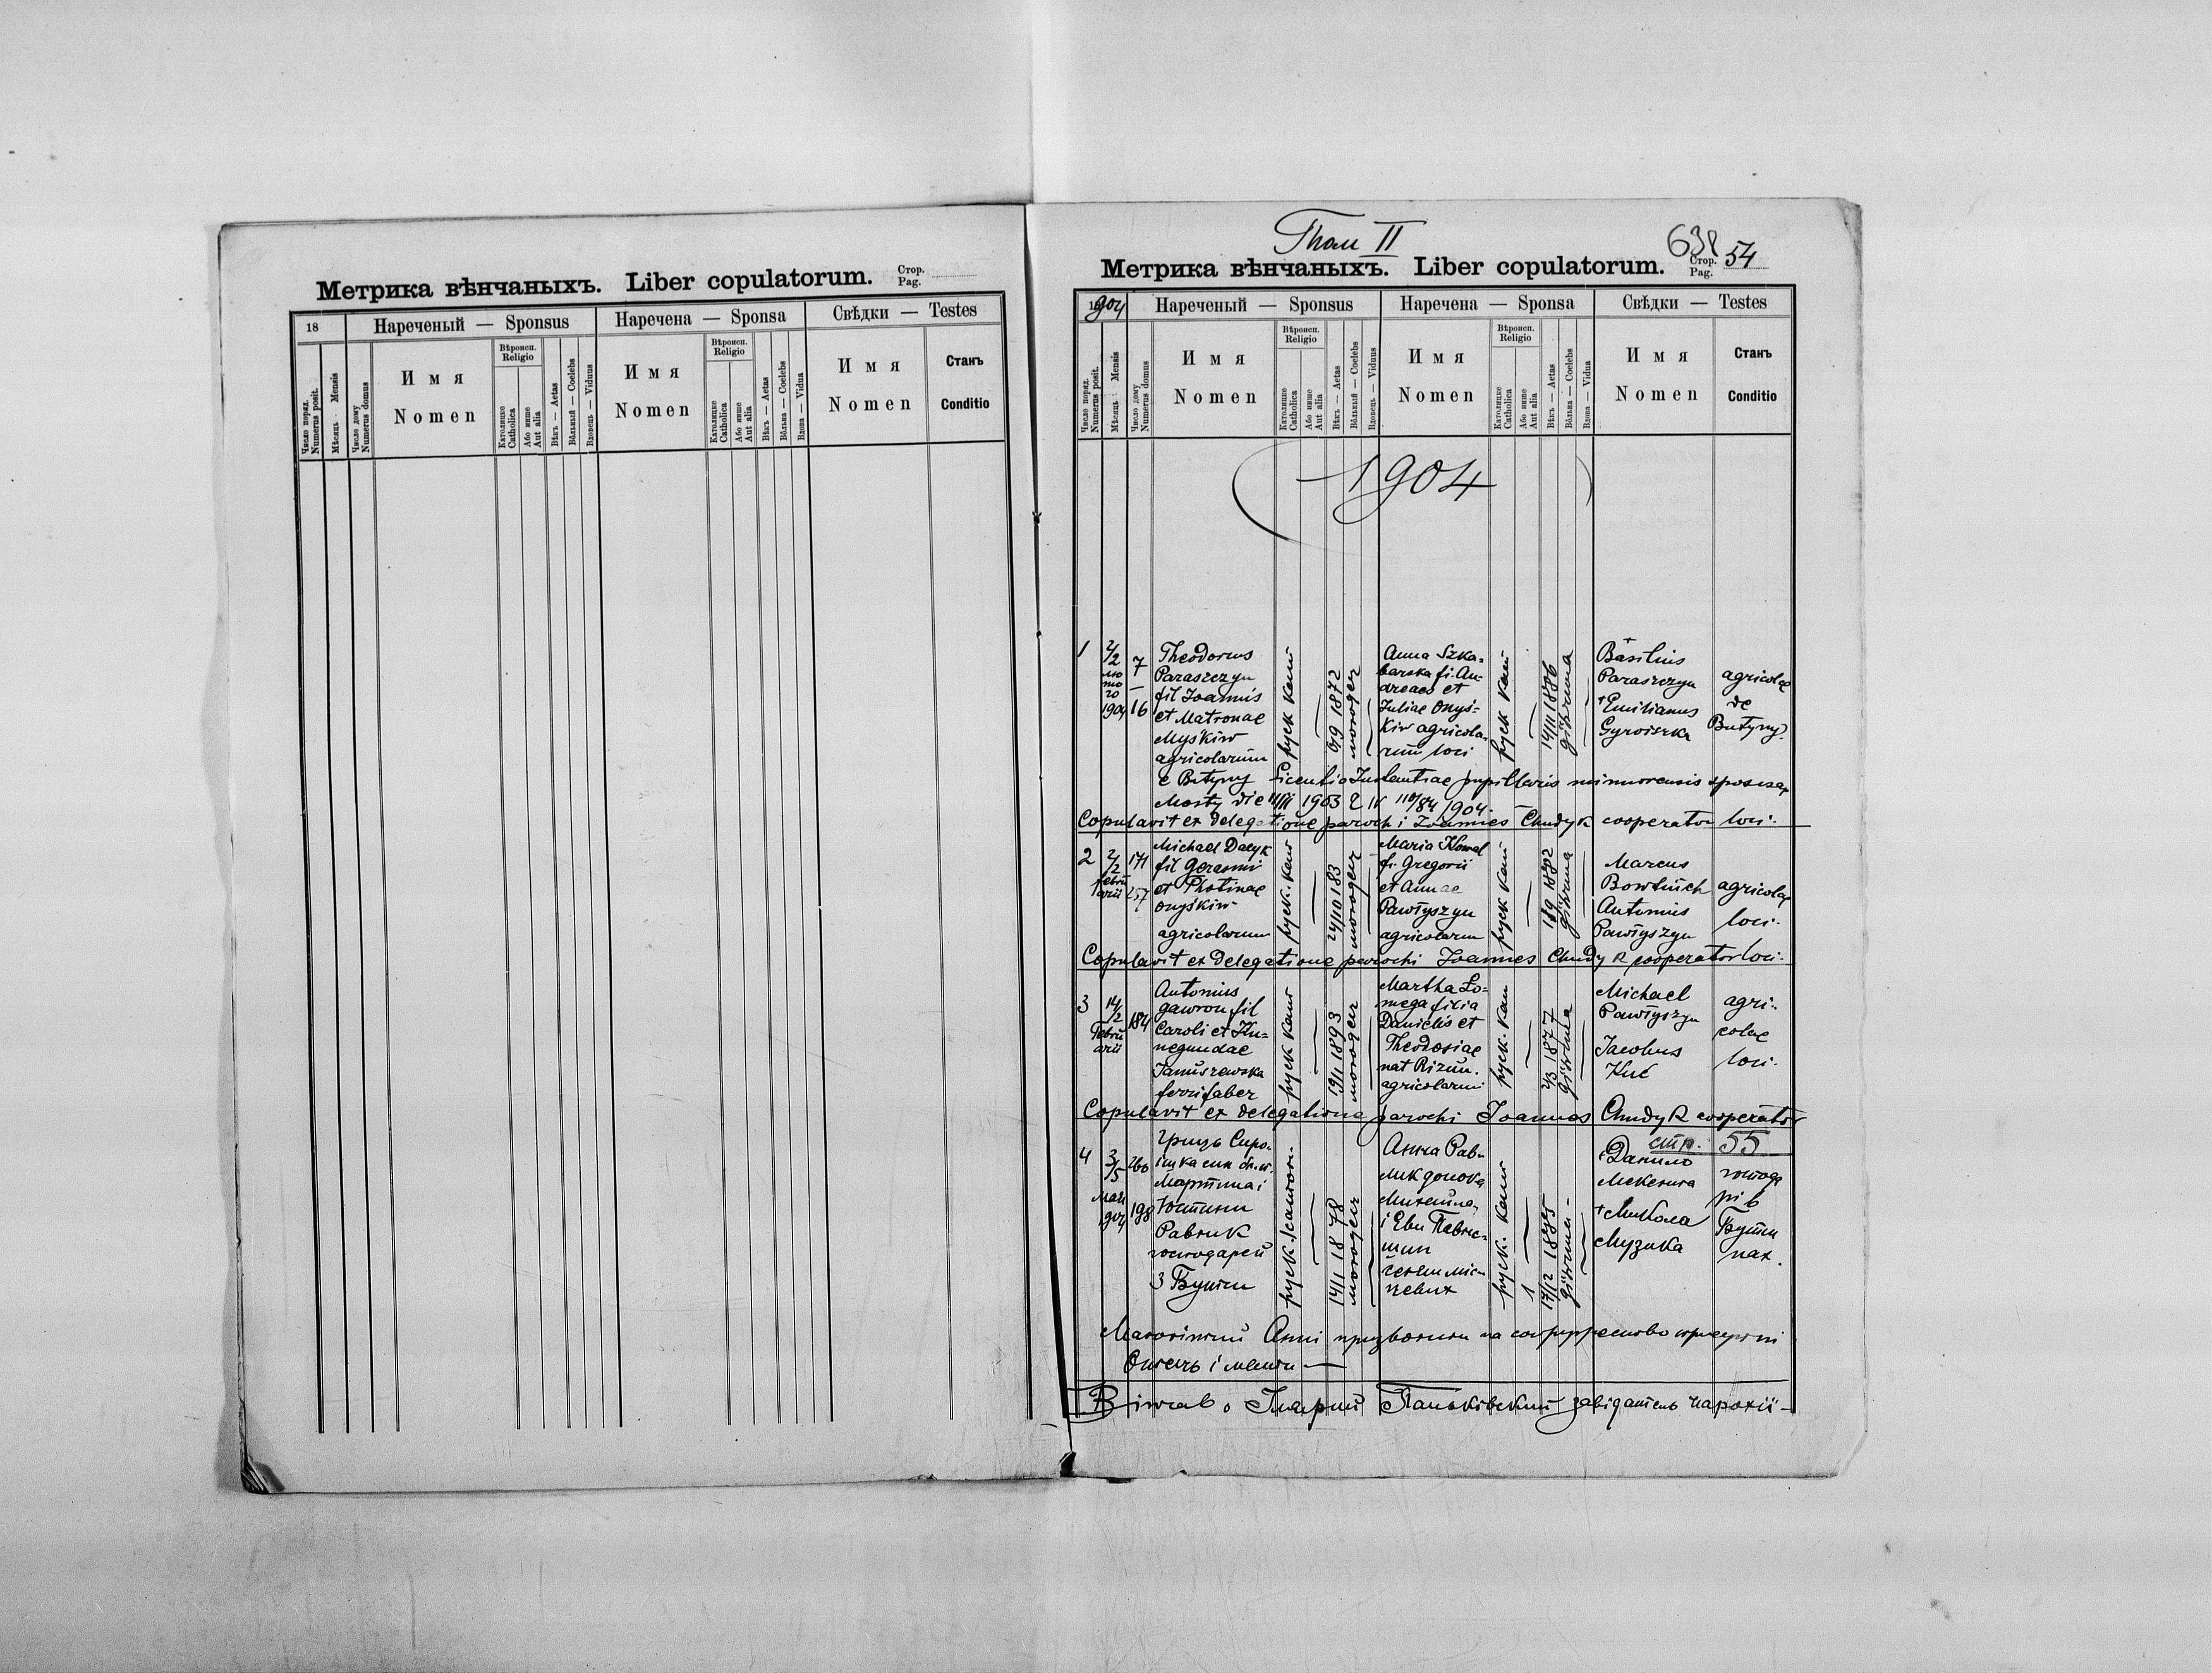 Метрика вѣнчаныхъ. Liber copulatorum. Стор. Pag.
18
Нареченый — Sponsus
Наречена — Sponsa
Свѣдки — Testes
Число поряд. Numerus posit.
Мѣсяць Mensis
Число дому Numerus domus
Имя
Nomen
Вѣроисп. Religio
Католицке Catholica
Або инше Aut alia
Вѣкъ — Aetas
Вôльный — Coelebs
Вдовець — Viduus
Имя
Nomen
Вѣроисп. Religio
Католицке Catholica
Або инше Aut alia
Вѣкъ — Aetas
Вôльна — Coelebs
Вдова — Vidua
Имя
Nomen
Станъ
Conditio
Том II
638
Метрика вѣнчаныхъ. Liber copulatorum. Стор. Pag. 54
1904
Нареченый — Sponsus
Наречена — Sponsa
Свѣдки — Testes
Число поряд. Numerus posit.
Мѣсяць Mensis
Число дому Numerus domus
Имя
Nomen
Вѣроисп. Religio
Католицке Catholica
Або инше Aut alia
Вѣкъ — Aetas
Вôльный — Coelebs
Вдовець — Viduus
Имя
Nomen
Вѣроисп. Religio
Католицке Catholica
Або инше Aut alia
Вѣкъ — Aetas
Вôльна — Coelebs
Вдова — Vidua
Имя
Nomen
Станъ
Conditio
1904
1
2/2
лю
то
го
1904
7
—
16
Theodorus
Paraszczyn
fil Joannis
et Matronae
Myśkiw
agricolarum
e Butyny
руск кат
6/9 1872
молодец
Anna Szka-
barska fi. An-
dreaes et
Juliae Onyś-
kiw agricola-
rum loci
руск кат
14/11 1886
дівчина
Basilius
Paraszczyn
+ Emilianus
agricolae
de
Butyny.
Licentio Instantiae pupillaris minnorensis sponsae
Mosty die 1903 1904.
Copulavit ex delegatione parochi Joannes Chudyk cooperator loci.
2
2/2
febru
arii
171
157
Michael Dacyk
fil Gerasimi
et Photinae
Onyśkiw
agricolarum
руск. кат
24/10 183
молодец
Maria Kowal
fi. Gregorii
et Annae
Pawłyszyn
agricolarum
руск кат
дівчина
Marcus
Antonius
Pawłyszyn
agricolae
loci.
Copulavit ex delegatione parochi Joannes Chudyk cooperator loci.
3
14/2
Febru
arii
184
Antonius
Gawron fil
Caroli et Ku-
negundae
Januszewska
ferrifaber
руск кат
19/1 1893
молодец
Martha Ło-
mega filia
Danielis et
Theodosiae
nat Rizun.
agricolarum
руск. кат
2/3 1877
дівчина
Michael
Pawłyszyn
Jacobus
Kuć
agri-
colae
loci.
Copulavit ex delegatione parochi Joannes Chudyk cooperator
стр. 55
4
3/5
Мая
904
260
198
Гриць Сиро-
тка син
Мартина і
Юстини
Равлик
господарей
З Бутин
руск. катол.
14/1 1878
молодец
Анна Рав-
лик донька
Михайла
і Еви Павли-
шин
руск. кат
17/12 1885
дівчина
+ Данило
+ Микола
Музика
господа
рі в
Бути
нах.
Малолітній Анні призволили на супружество присутні
Отець і мати —
Вінчав о. Іларий Паньківский завідатель парохії —